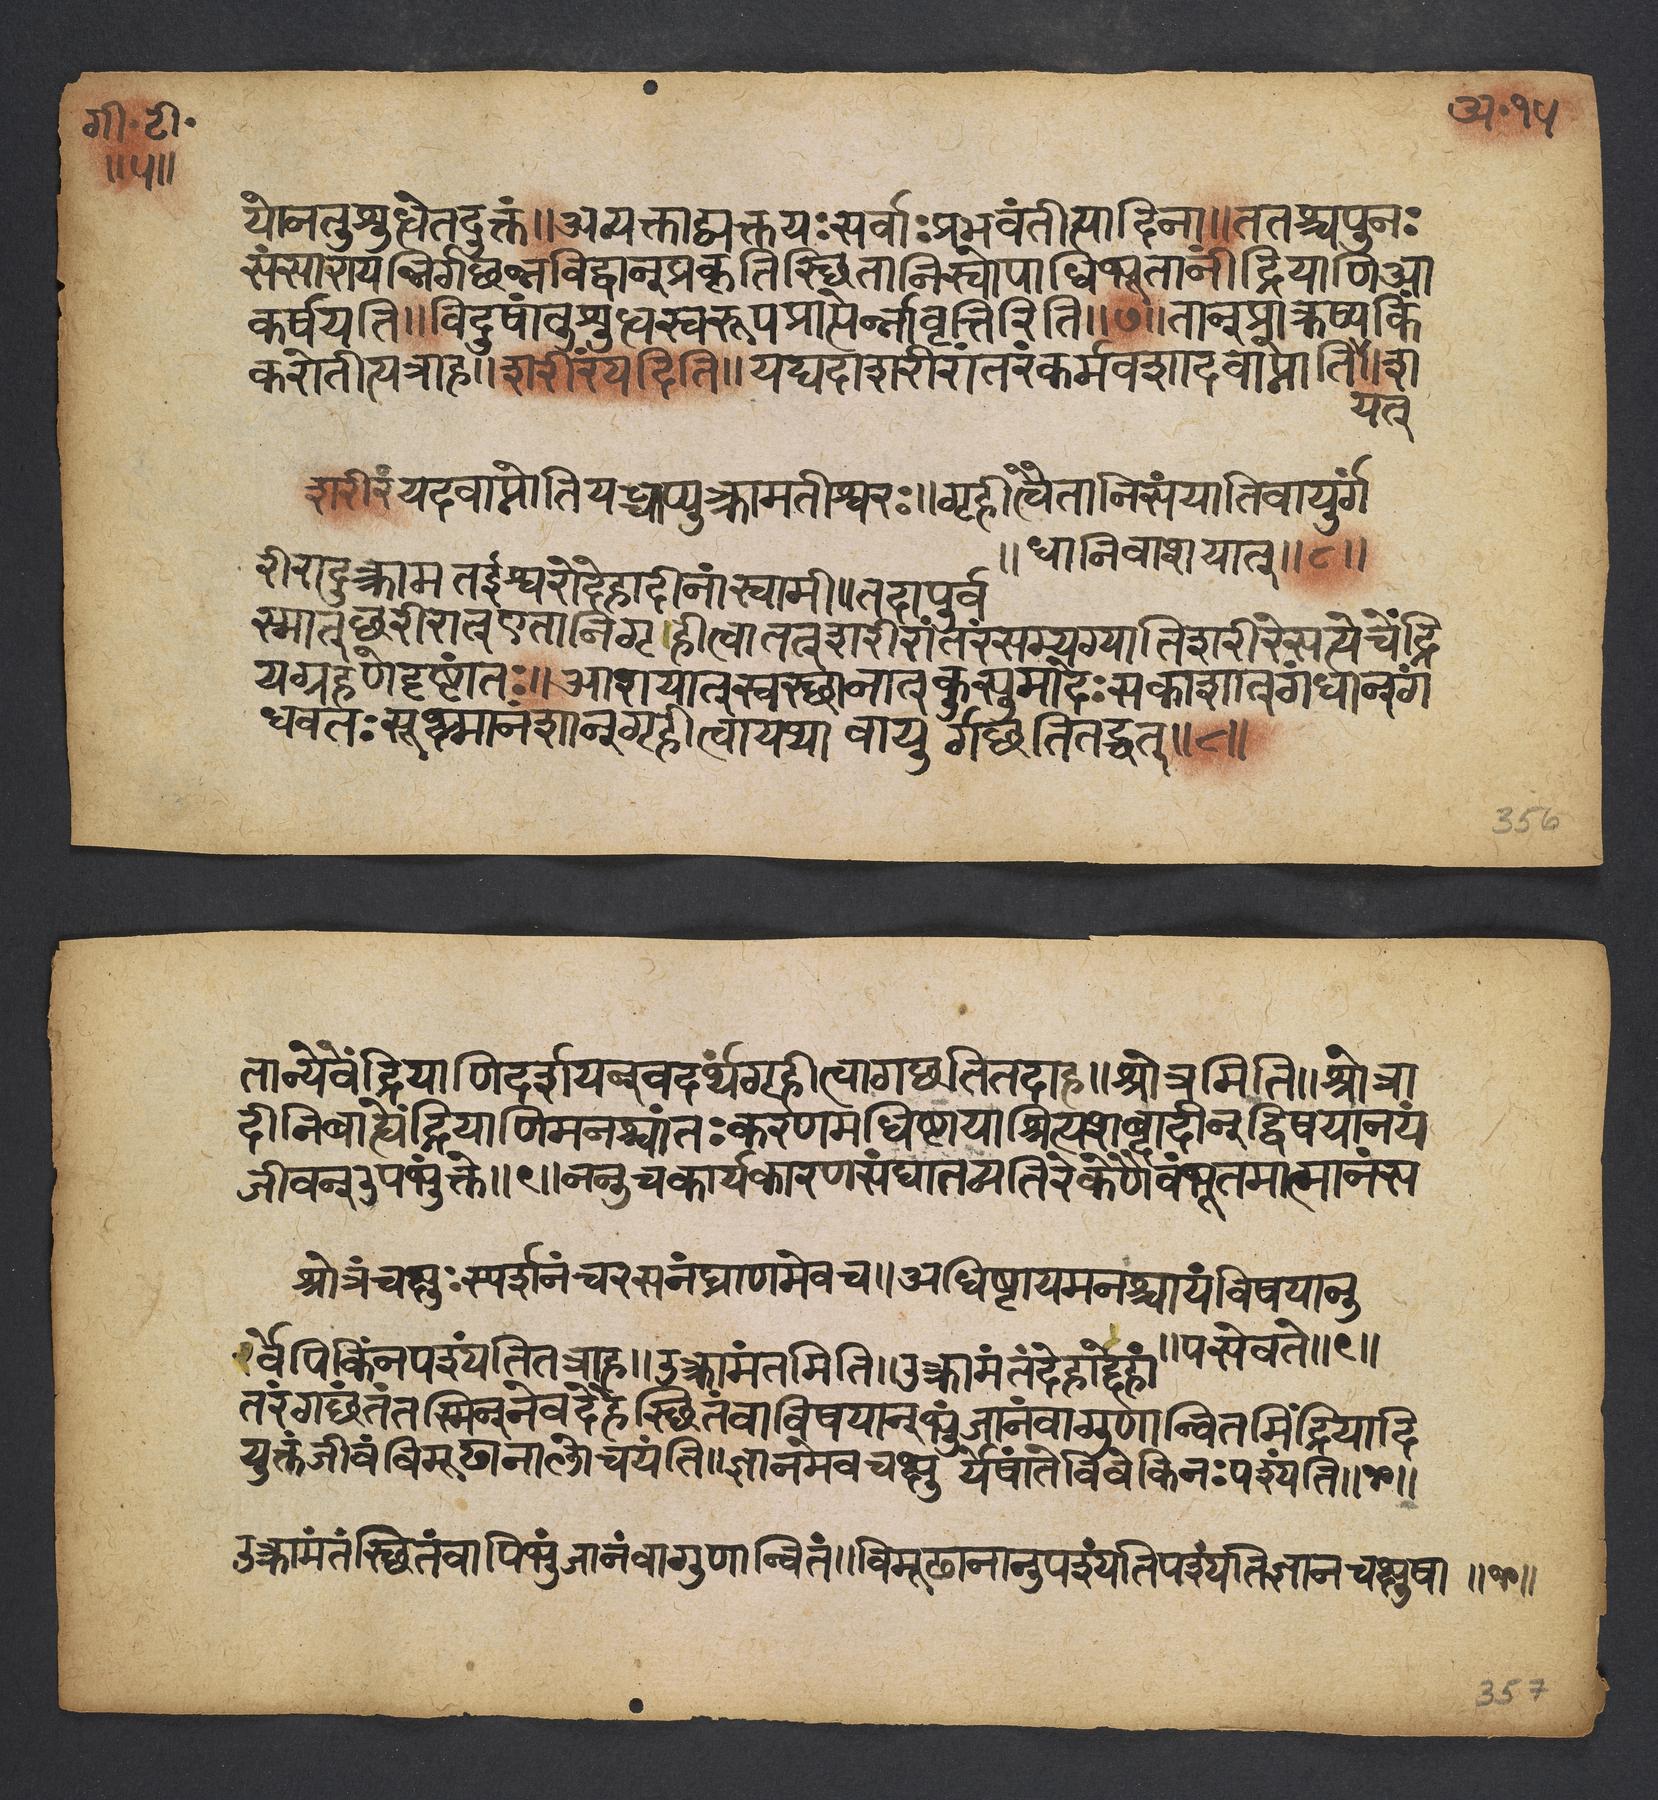 गी॰ टी॰
॥५॥
अ॰१५
योनतुशुध्धेतदुक्तं॥अव्यक्ताद्व्यक्तयःसर्वाःप्रभवंतीत्यादिना॥ततश्चपुनः
संसारायनिर्गछन्नविद्वान्प्रकृतिस्छितानिस्वोपाधिभूतानींद्रियाणिआ
कर्षयति॥विदुषांतुशुध्धस्वरूपप्राप्तेर्न्नावृत्तिरिति॥७॥तान्प्राकृष्यकिं
करोतीत्यत्राह॥शरीरंयदिति॥यद्यदाशरीरांतरंकर्मवशादवाप्नोति॥श
यत्
शरीरंयदवाप्नोतियच्चाप्युत्क्रामतीश्वरः॥गृहीत्वैतानिसंयातिवायुर्गं
॥धानिवाशयात्॥८॥
रीरादुत्क्रामतईश्वरोदेहादीनांस्वामी॥तदापूर्व
स्मात्छरीरात्एतानिगृहीत्वातत्शरीरांतरंसम्यग्यातिशरीरेसत्येचेंद्रि
यग्रहणेदृष्टांतः॥आशयात्स्वस्छानात्कुसुमादेःसकाशात्गंधान्गं
धवतःसूक्ष्मानंशान्गृहीत्वायथा वायु र्गछतितद्वत्॥८॥
356
तान्येवेंद्रियाणिदर्शयन्वदर्थंगृहीत्वागछतितदाह॥श्रोत्रमिति॥श्रोत्रा
दीनिबाह्येंद्रियाणिमनश्चांतःकरणमधिष्टायाश्रित्यशब्दादीन्विषयानयं
जीवन्उपभुंक्ते॥९॥ननुचकार्यकारणसंघातव्यतिरेकेणैवंभूतमात्मानंस
श्रोत्रंचक्षुःस्पर्शनंचरसनंघ्राणमेवच॥अधिष्टायमनश्चायंविषयानु
॥पसेवते॥९॥
र्वेपिकिंनपश्यंतितत्राह॥उत्क्रामंतमिति॥उत्क्रामंतंदेहाद्देहां
तरंगछंतंतस्मिन्नेवदेहेस्छितंवाविषयान्भुंजानंवागुणान्वितमिंद्रियादि
युक्तंजीवंविमूढानालोचयंति॥ज्ञानमेवचक्षु र्येषांतेविवेकिनःपश्यंति॥१०॥
उत्क्रामंतंस्छितंवापिभुंजानंवागुणान्वितं॥विमूढानानुपश्यंतिपश्यंतिज्ञानचक्षुषा ॥१०॥
357